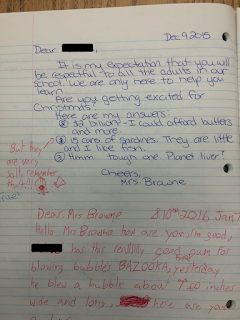 Dec 9 2015
Dear
It is my expectation that you will
be respectful to all the adults in our
school. We are only here to help you
learn.
Are you getting excited for
Christmas?
Here are my answers:
① $2 billion - I could afford butlers
and more.
② 15 cans of sardines. They are little
and I like fish.
③ Hmm tough one. Planet liver!
But they
are very
salty, remember
Cheers,
Mrs. Browne
Dear. Mrs. Browne
2016 Jan
Hello Mrs. Browne how are you, Im good,
has this really good gum for
blowing bubbles BAZOOKA, yesterday
he blew a bubble about inches
wide and long, here are your